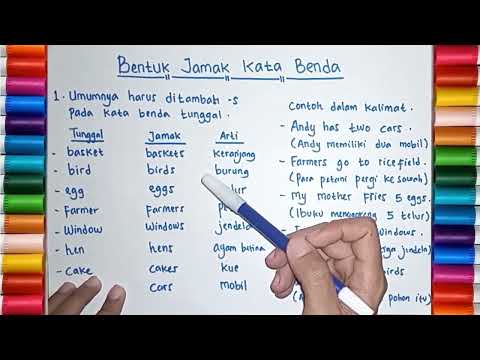 Bentuk Jamak Kata Benda
1. Umumnya harus ditambah -s
pada kata benda tunggal.
Tunggal Jamak Arti
- basket baskets keranjang
- bird birds burung
- egg eggs
- Farmer Farmers
- Window Windows jendela
- hen hens ayam betina
- cake cakes kue
cars mobil
Contoh dalam kalimat.
- Andy has two cars.
(Andy memiliki dua mobil)
- Farmers go to ricefield.
(Para petani pergi ke sawah)
- My mother fries 5 eggs.
(Ibuku menggoreng 5 telur)
Windows.
jendela)
birds
pohon itu)